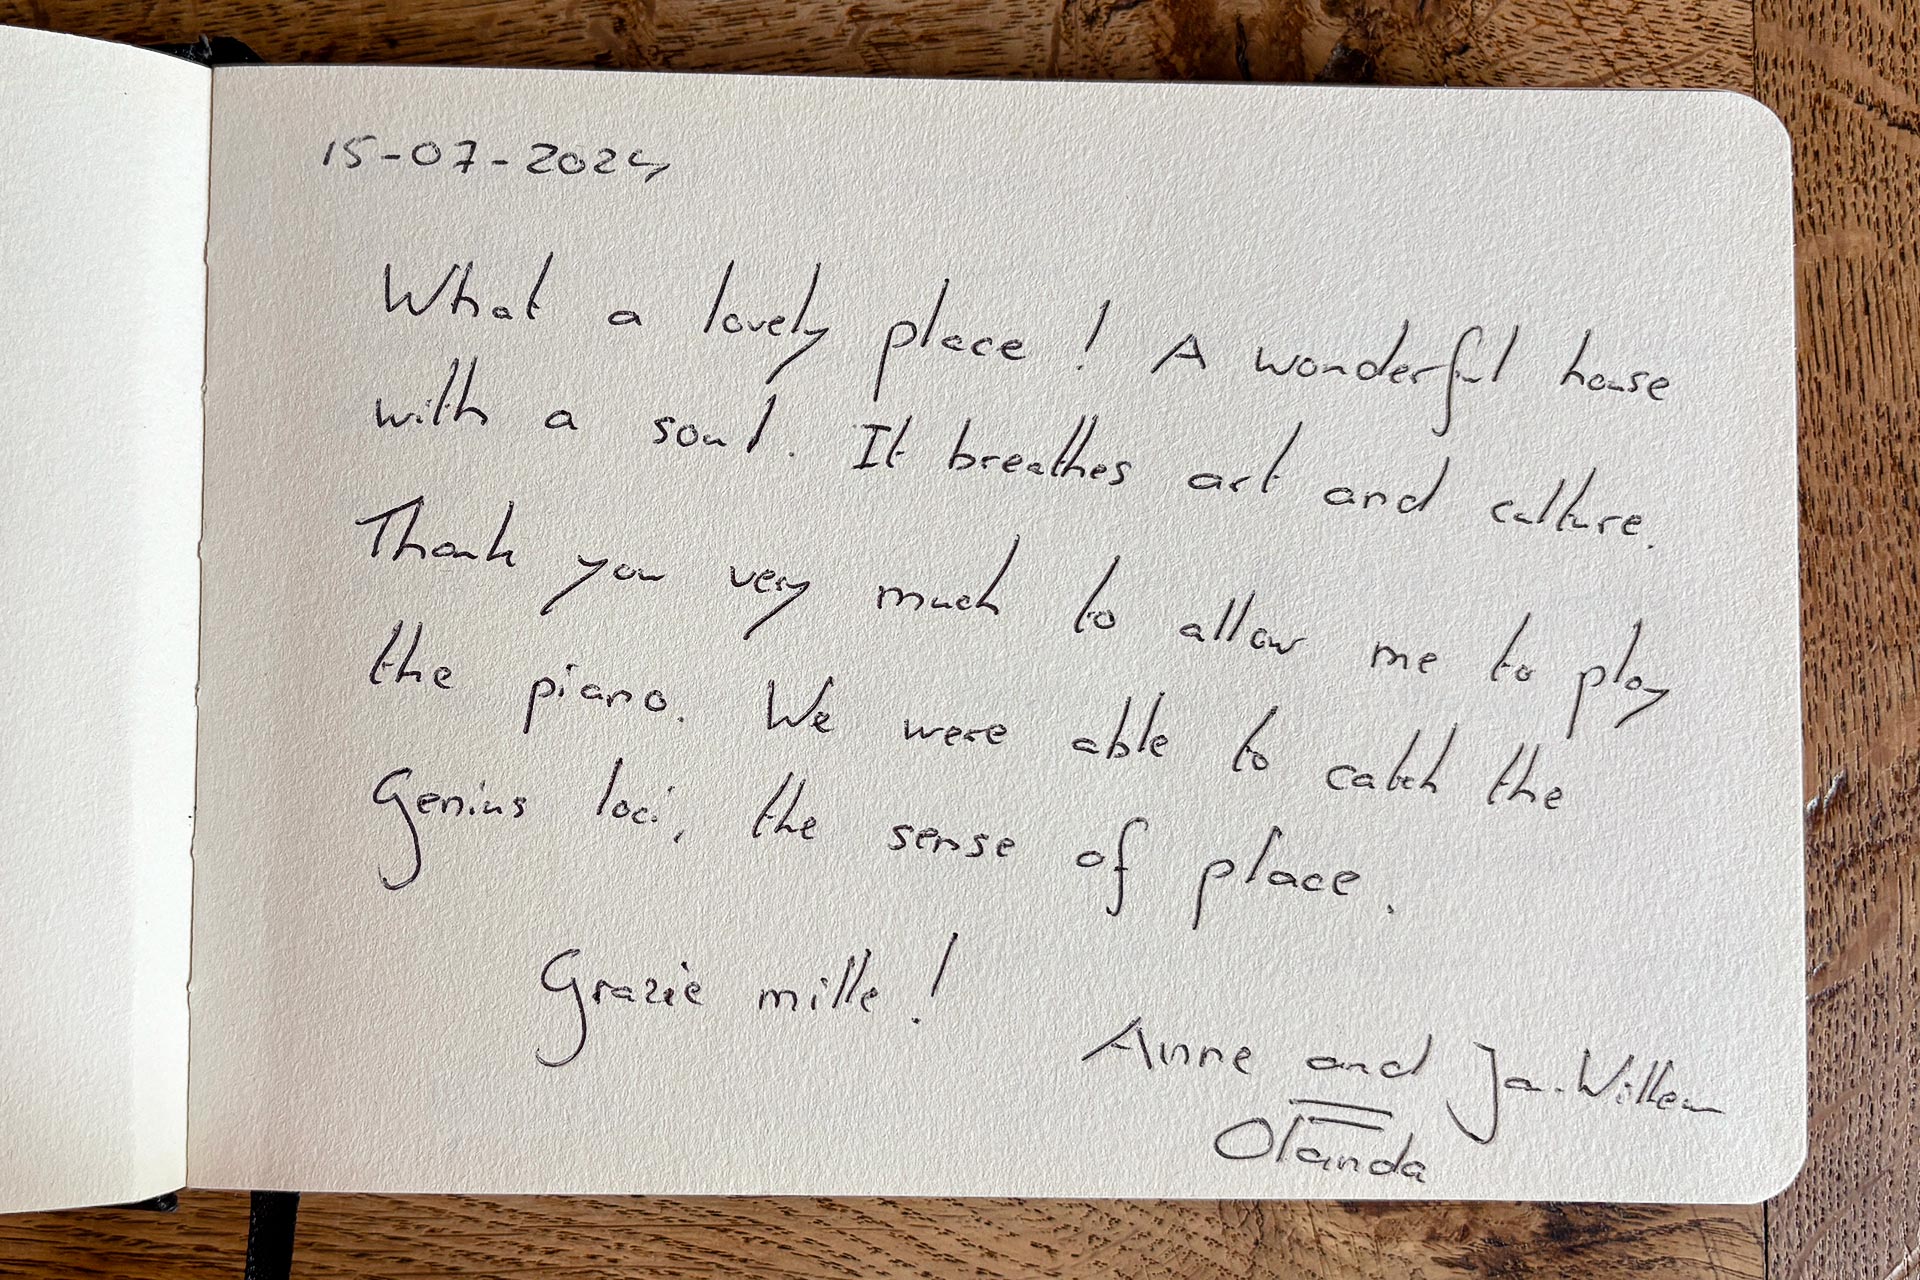 15-07-2024
What a lovely place! A wonderful house
with a soul. It breathes art and culture.
Thank you very much to allow me to play
the piano. We were able to catch the
Genius loci, the sense of place.
Grazie mille!
Anne and Ja-Willem
Olanda